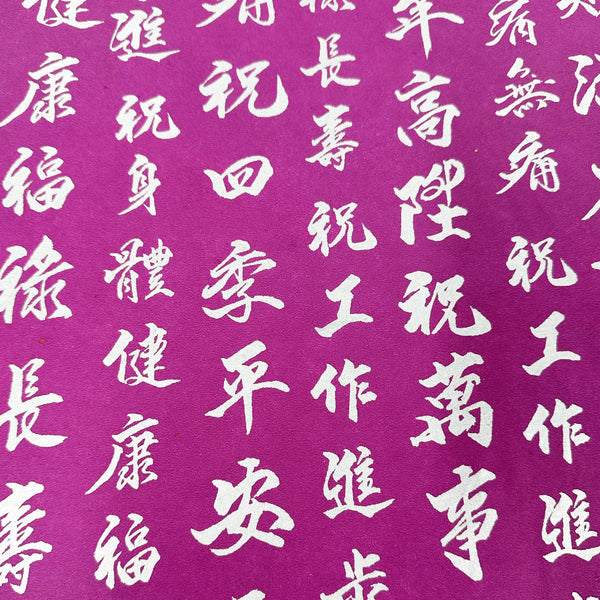 病無痛祝工作進
年高陞祝萬事
祿長壽祝工作進步
痛祝四季平安
進祝身體健康福
健康福祿長壽